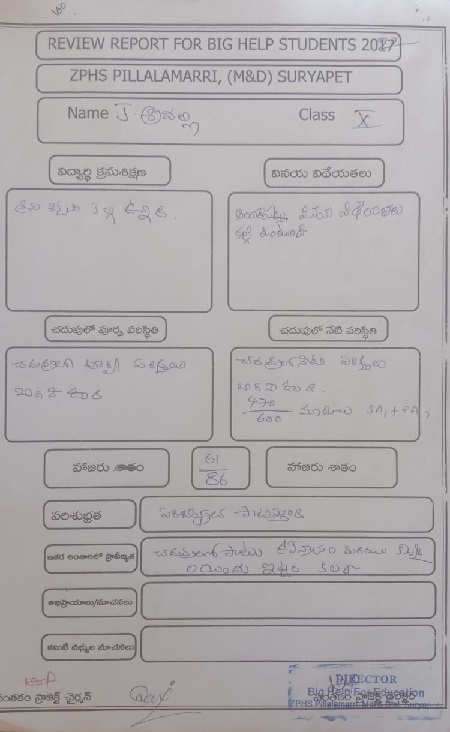 REVIEW REPORT FOR BIG HELP STUDENTS 2027
ZPHS PILLALAMARRI, (M&D) SURYAPET
Name J. శ్రీవల్లి Class X
విద్యార్థి క్రమశిక్షణ
వినయ విధేయతలు
క్రమ శిక్షణ కల్గి ఉన్నది.
వినయ విధేయతలు
కల్గి ఉంటుంది
చదువులో పూర్వ పరిస్థితి
చదువులో నేటి పరిస్థితి
చదువులో పూర్వ పరిస్థితి
బాగానే ఉంది
చదువులో నేటి
బాగానే ఉంది.
470/600 మార్కులు SA1 + FA
హాజరు శాతం
61/86
హాజరు శాతం
పరిశుభ్రత
పరిశుభ్రత పాటిస్తుంది
ఇతర అంశాలలో ప్రావీణ్యత
చదువుతో పాటు మరియు
అయిందు ఇష్టం కలదు
అభిప్రాయాలు/సూచనలు
కమిటీ సభ్యుల సూచనలు
సంతకం ప్రాజెక్ట్ చైర్మన్
సంతకం ప్రాజెక్ట్ డైరెక్టర్
DIRECTOR
Big Help For Education
ZPHS Pillalamarri, Suryapet